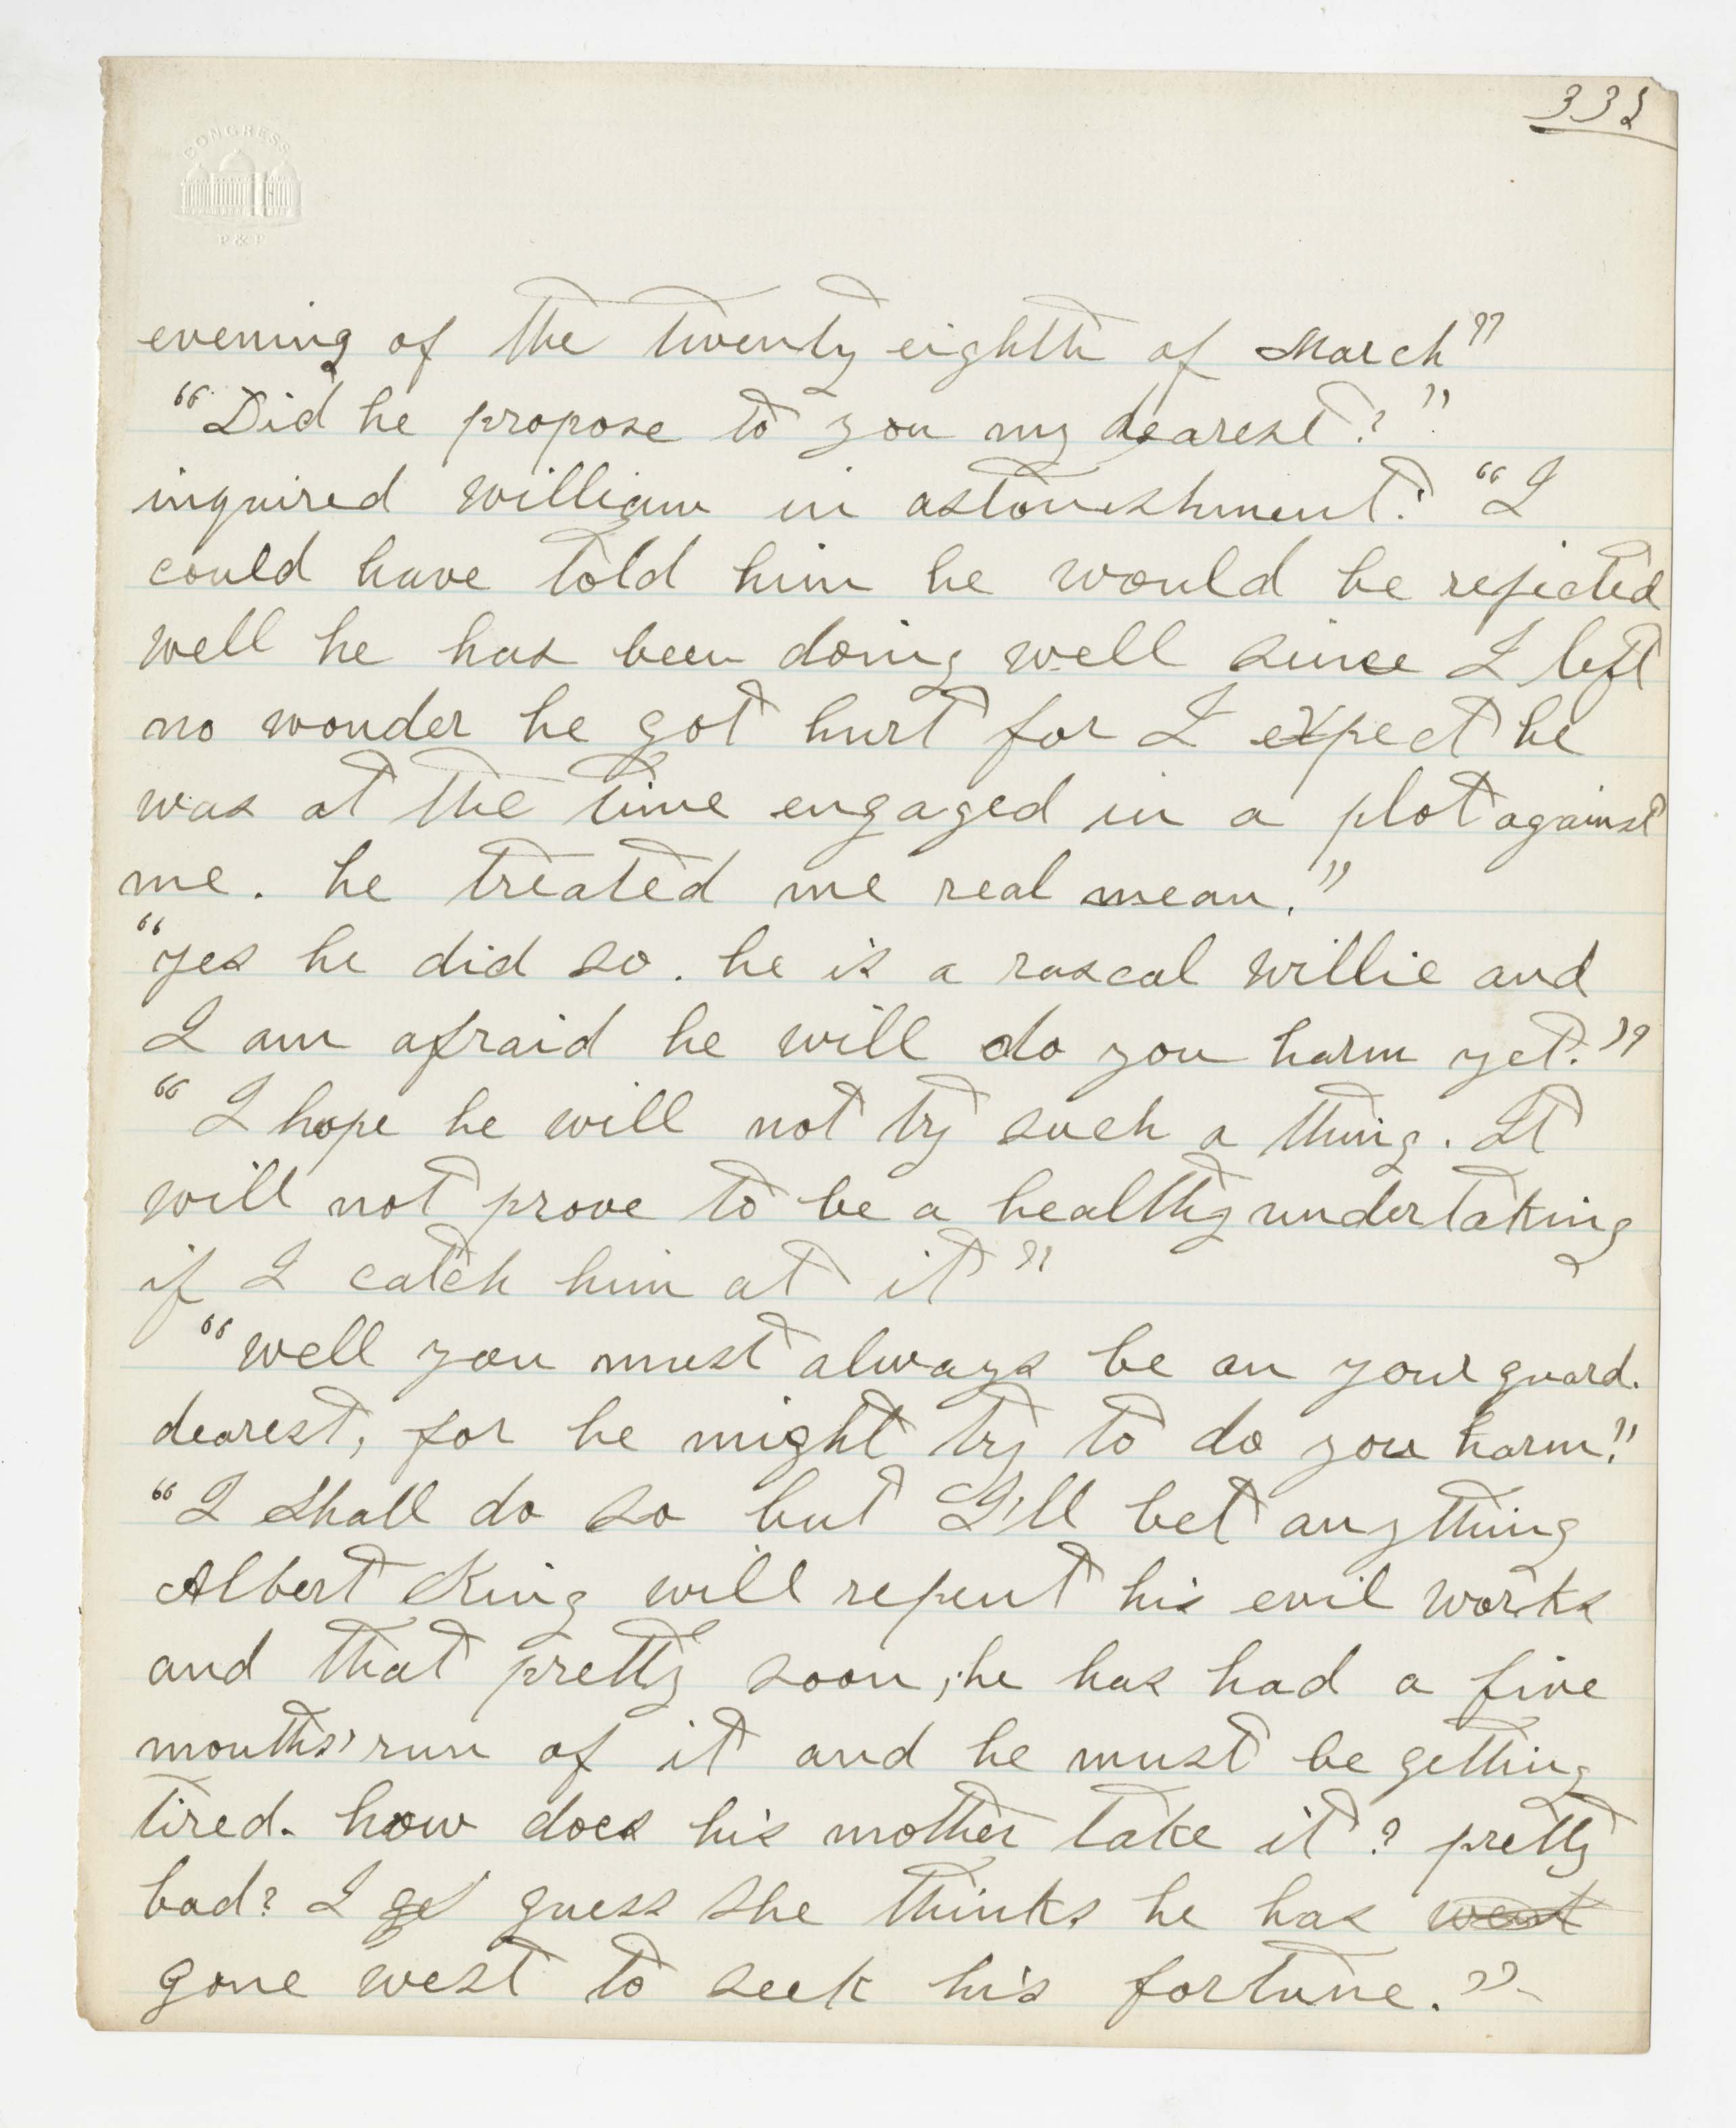 CONGRESS
P & P
332
evening of the twenty eighth of March"
"Did he propose to you my dearest?"
inquired william in astonishment. "I
could have told him he would be rejected
well he has been doing well since I left
no wonder he got hurt for I expect he
was at the time engaged in a plot against
me. he treated me real mean."
"yes he did so. he is a rascal willie and
I am afraid he will do you harm yet."
"I hope he will not try such a thing. It
will not prove to be a healthy undertaking
if I catch him at it"
"well you must always be on your guard.
dearest, for he might try to do you harm."
"I shall do so but I'll bet anything
Albert King will repent his evil works
and that pretty soon; he has had a five
months' run of it and he must be getting
tired. how does his mother take it? pretty
bad? I ge guess she thinks he has went
gone west to seek his fortune."